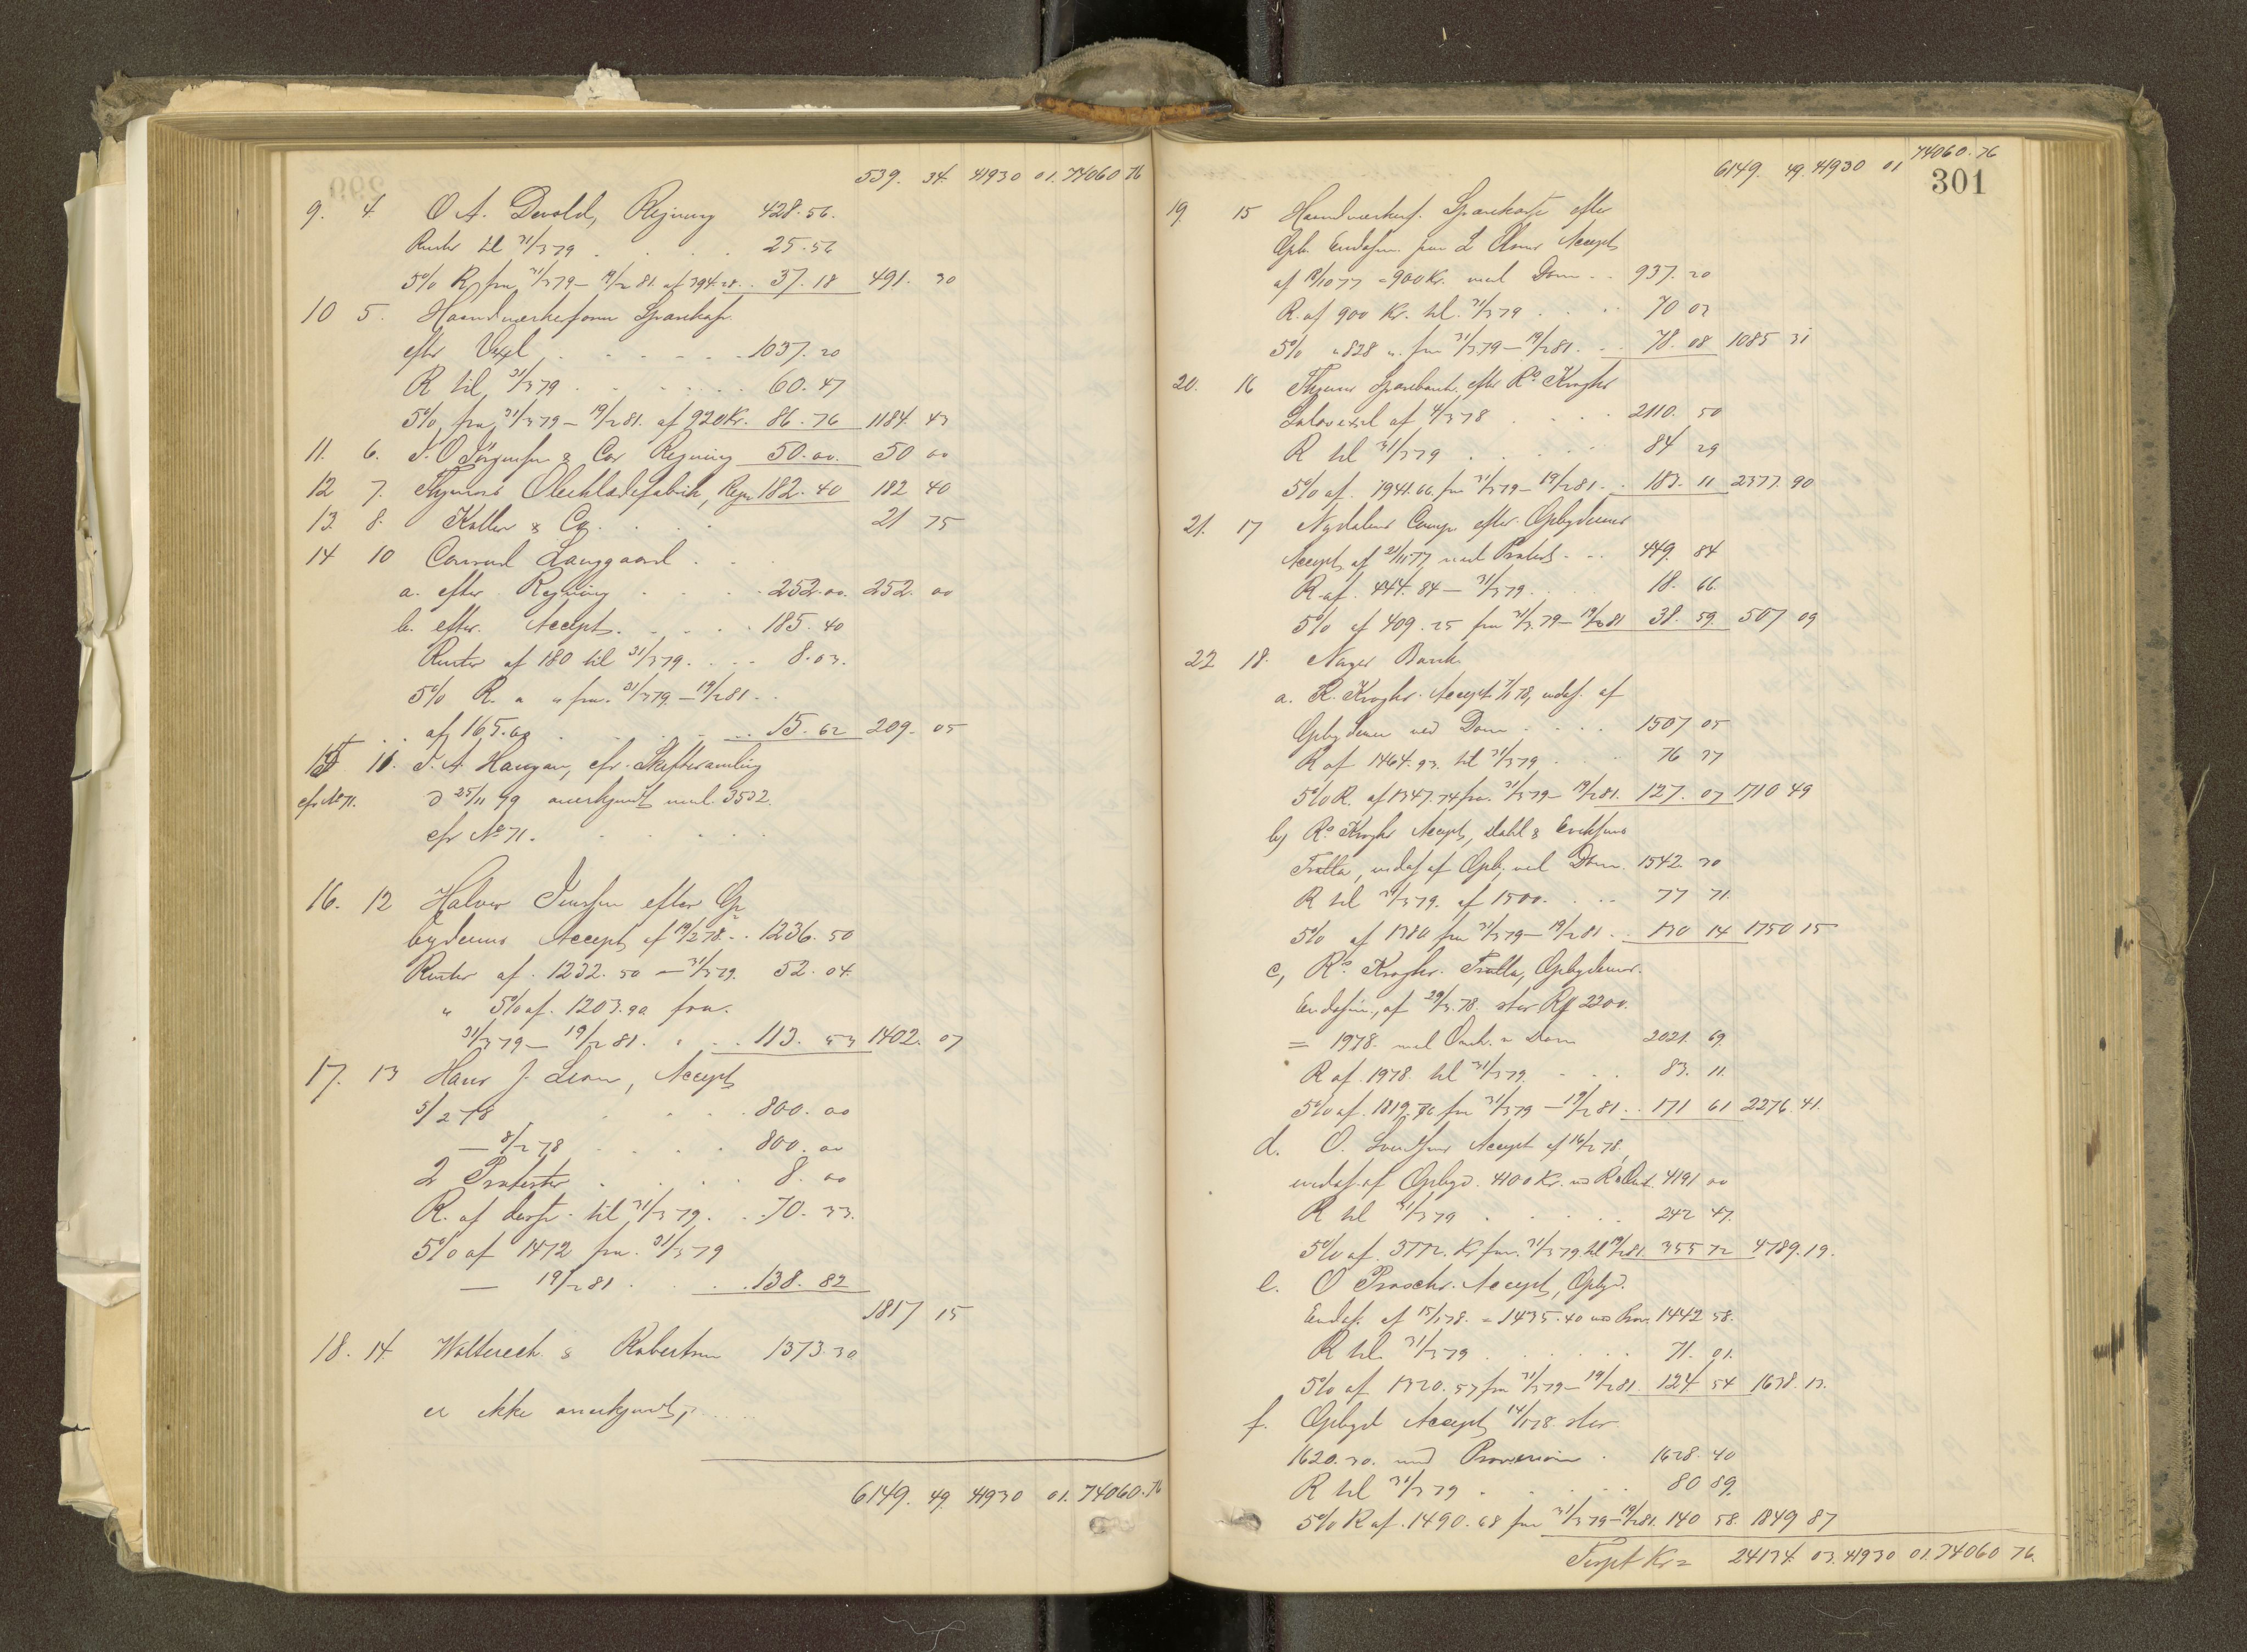 539. 34. 41930 01. 74060 76
9. 4. O A. Devold, Regning 428.56.
Renter til 31/3 79 . . . . 25.56
5% R fra 31/3 79 – 19/2 81. af 394.28 . . 37.18 491. 30
10 5. Haandværkerforen Sparekas.
efter Vexel . . . . . . 1037.20
R til 31/3 79 . . . . . . 60.47
5% fra 31/3 79 – 19/2 81. af 920 Kr. 86.76 1184. 43
11. 6. J. O Jörgensen & Co's Regning 50.00. 50 00
12 7. Blecktladefabrik, Regn 182.40 182 40
13. 8. Koller & Co . . . 21 75
14 10 Conrad Langgaard . . .
a. efter Regning . . . . 252.00. 252. 00
b. efter. Accept . . . . . 185.40
Renter af 180 til 31/3 79. . . . 8.03.
5% R. " " fra. 31/3 79 – 19/2 81 . .
af 165.60 . . . . . . 15.62 209. 05
15 11. J. A. Haugan, cfr. Skiftesamling
cfr No 71. d 25/11 79 anerkjendt med. 3532.
cfr No 71. . . . . .
16. 12 Halvor Jensen efter Op
bydernes Accept af 19/2 78. . . 1236.50
Renter af. 1232.50 – 31/3 79. 52.04
" 5% af. 1203.90. fra.
31/3 79 – 19/2 81. . . . 113. 53 1402. 07
17. 13 Hans J. Lion, Accept
5/2 78 . . . . 800.00
– 8/2 78 . . . . 800.00
2 Protester . . . . 8.00
R. af derfr. til 31/3 79. . . 70.33.
5% af 1472 fra. 31/3 79
– 19/2 81 . . . . 138. 82
1817 15
18. 14. Wolterech & Robertson 1373.30
er ikke anerkjendt, . . . .
6149. 49. 41930 01. 74060.76
6149. 49. 41930 01 74060.76
301
19 15 Haandværkerf. Sparekasse efter
Opb. Endossem paa L Accept
af 18/10 77 = 900 Kr. med Dom . . 937. 20
R. af 900 Kr. til. 31/3 79 . . . 70 03
5% " 828 ". fra 31/3 79 – 19/2 81. . . 78. 08 1085 31
20. 16 Sparebank, efter Ro. Kroghs
Solavexel af 4/3 78 . . . 2110. 50
R til 31/3 79 . . . . . 84 29
5% af. 1941.66. fra 31/3 79 – 19/2 81 . . 183. 11 2377. 90
21. 17 Nydalens Comp. efter Opbydernes
Accept, af 21/11 77 med Protest . . . 449. 84
R. af. 444.84 – 31/3 79. . . 18. 66.
5% af 409.25 fra 31/3 79 – 19/2 81 38. 59. 507 09
22 18. Bank.
a. R. Kroghs. Accept 7/1 78, endos. af
Opbyderen med Dom . . . . 1507 05
R af 1464.93. til 31/3 79 . . . 76 37
5% R. af 1347.74 fra. 31/3 79 – 19/2 81. 127. 07 1710 49
b) Ro. Kroghs Accept, Dahl & Erichsens
Tratta, endos. af Opb. med Dom. 1542. 30
R til 31/3 79. af 1500. . . . 77 71.
5% af 1380 fra 31/3 79 – 19/2 81 . . 130 14 1750 15
c, Ro. Kroghs. Tratta, Opbydernes.
Endossem., af 29/3. 78. stor Rf 2200.
= 1978. med Omk. & Dom 2021. 69.
R af. 1978. til 31/3 79. . . . 83. 11.
5% af. 1819.76 fra 31/3 79 – 19/2 81 . . 171 61 2276. 41.
d. O. Accept af 16/2 78,
endos. af Opbyd. 4100 Kr. 4191 00
R til 31/3 79 . . . . . 242 47.
5% af 3772. Kr fra. 31/3 79 til 19/2 81. 355 72 4789. 19.
e. O Accept, Opbyd.
Endos. af 15/1 78. = 1435.40 Prov. 1442 58.
R til. 31/3 79 . . . . . . 71. 01.
5% af 1320.57 fra 31/3 79 – 19/2 81. 124 54 1638. 13.
f. Opbyd Accept 14/1 78 stor.
1620.30. med Provision . 1628. 40
R til 31/3 79 . . . . . 80 89.
5% R af. 1490.68 fra 31/3 79 – 19/2 81. 140 58. 1849 87
Trspt Kr = 24134. 03. 41930 01. 74060 76.